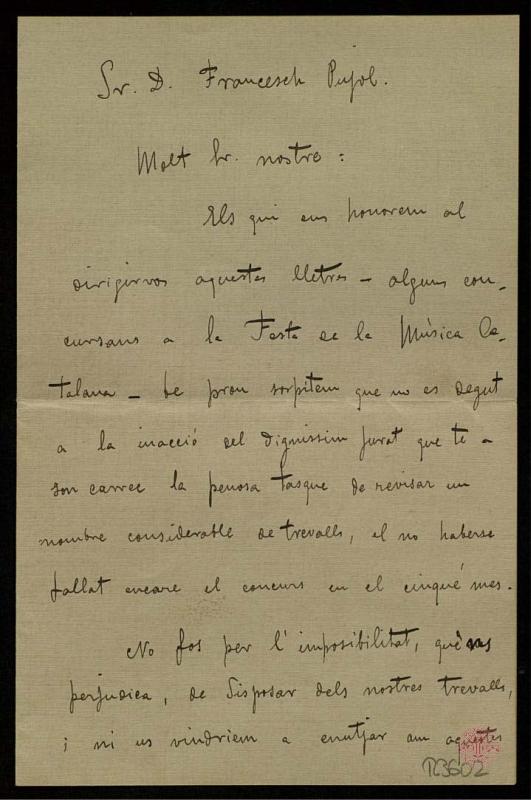 Sr. D. Francesch Pujol.
Molt Sr. nostre :
Els qui ens honorem al
dirigirvos aquestes lletres — alguns con-
cursans a la Festa de la Música Ca-
talana — be prou sospitem que no es degut
a la inacció del digníssim Jurat que te a
son carrec la penosa tasque de revisar un
nombre considerable de trevalls, el no haberse
fallat encare el concurs en el cinqué mes.
No fos per l'imposibilitat, que'ns
perjudica, de disposar dels nostres trevalls,
i ni us vindriem a enutjar am aquestes
R3602